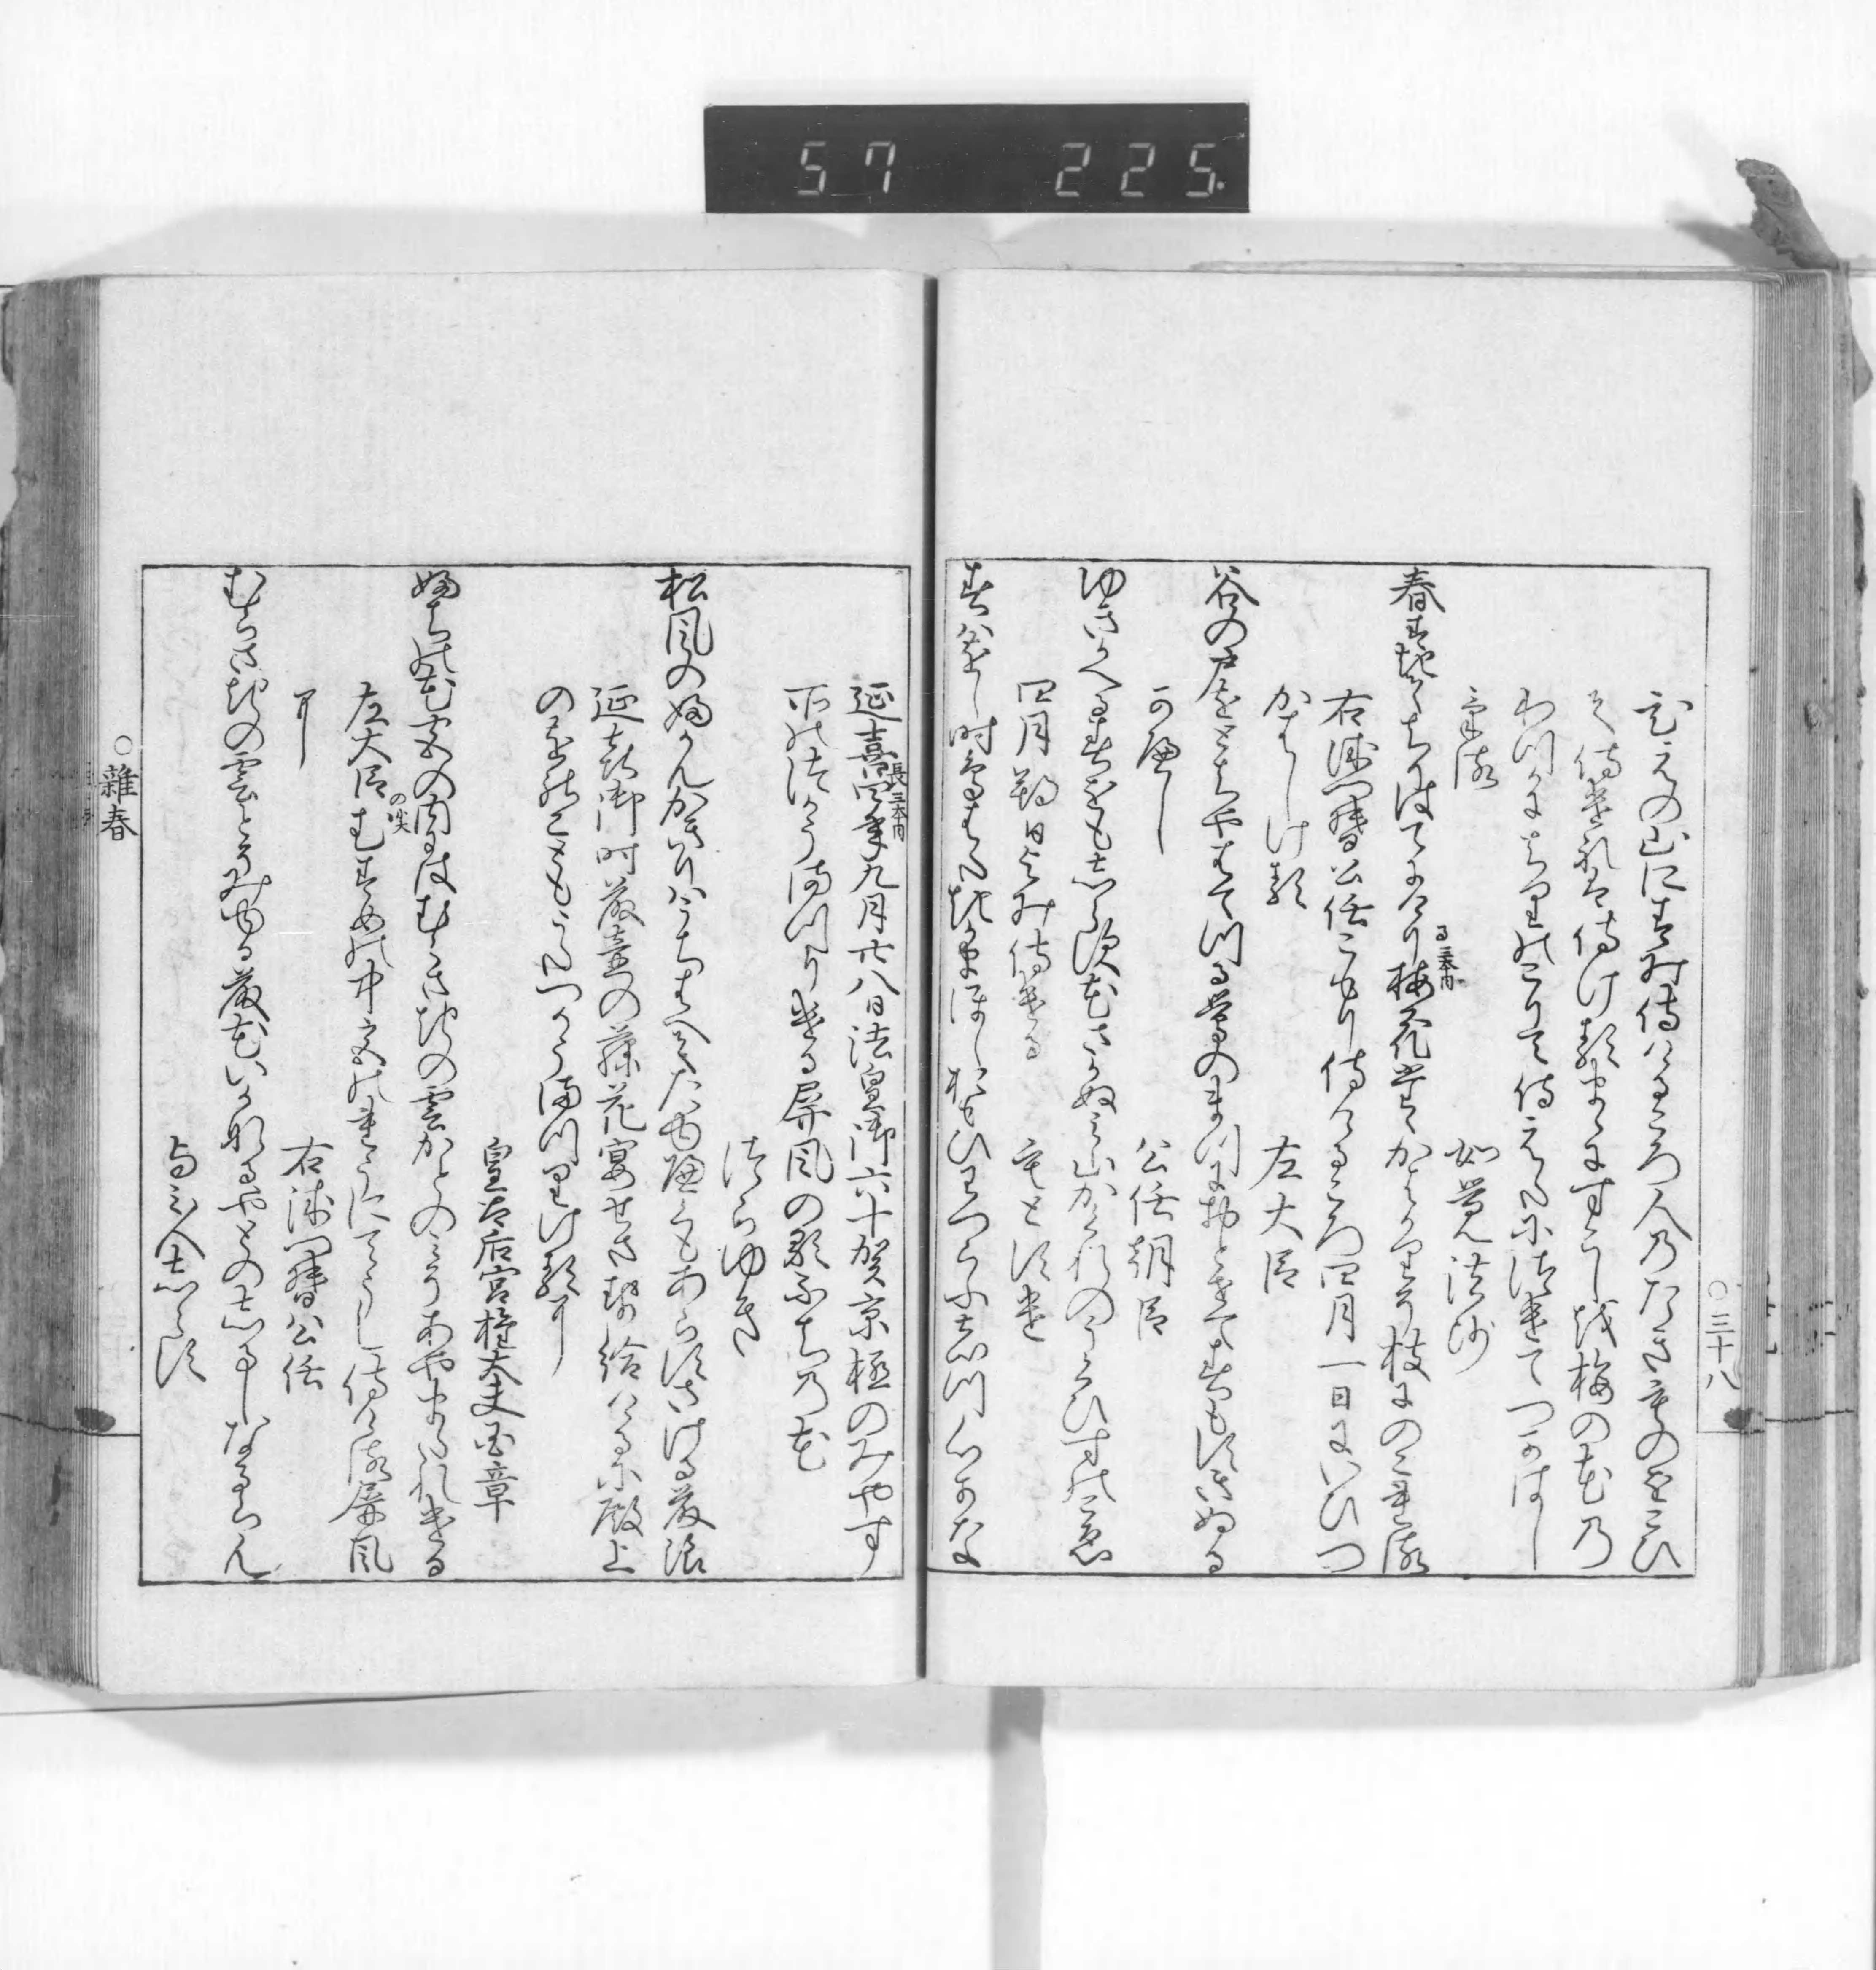 57 225
○三十八
ひえの山にすみ侍けるころ人のたき物をこひ
て侍けれは侍けるまゝにすこしを梅の花の
わつかにちりのこりて侍えたにつけてつかはし
ける
如覚法師
春すきてちりはてにけり梅花たゝかはかりそ枝にのこれる
る三本内
右衛門督公任こもり侍けるころ四月一日にいひつ
かはしける
左大臣
谷の戸をとちやはてつる鶯のまつにおとせて春もすきぬる
かへし
公任朝臣
ゆきかへる春をもしらす花さかぬみ山かくれのうくひすのこゑ
四月朔日よみ侍ける
もとすけ
春はをし時鳥はたきかまほし思ひわつらふしつ心かな
延喜四年九月廿八日法皇御六十賀京極のみやす
長三本内
所のつかうまつりける屏風の歌ふちの花
つらゆき
松風のふかんかきりはうちはへてたゆへくもあらすさける藤浪
延喜御時藤壺の藤花宴せさせ給けるに殿上
のをのこともうたつかうまつりけるに
皇太后宮権大夫国章
ふちの花宮の内にはむらさきの雲かとのみそあやまたれける
左大臣むすめの中宮のれうにてうし侍ける屏風
に
右衛門督公任
むらさきの雲とそみゆる藤花いかなるやとのしるしなるらん
よみ人しらす
○雑春